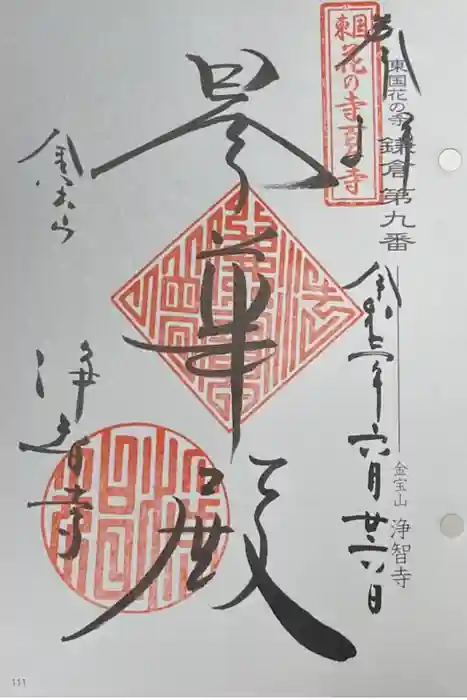 東国花の寺 鎌倉第九番
金宝山 浄智寺
東国
花の寺百ヶ寺
奉拝
令和二年六月廿六日
曇華殿
金宝山
浄智寺
111